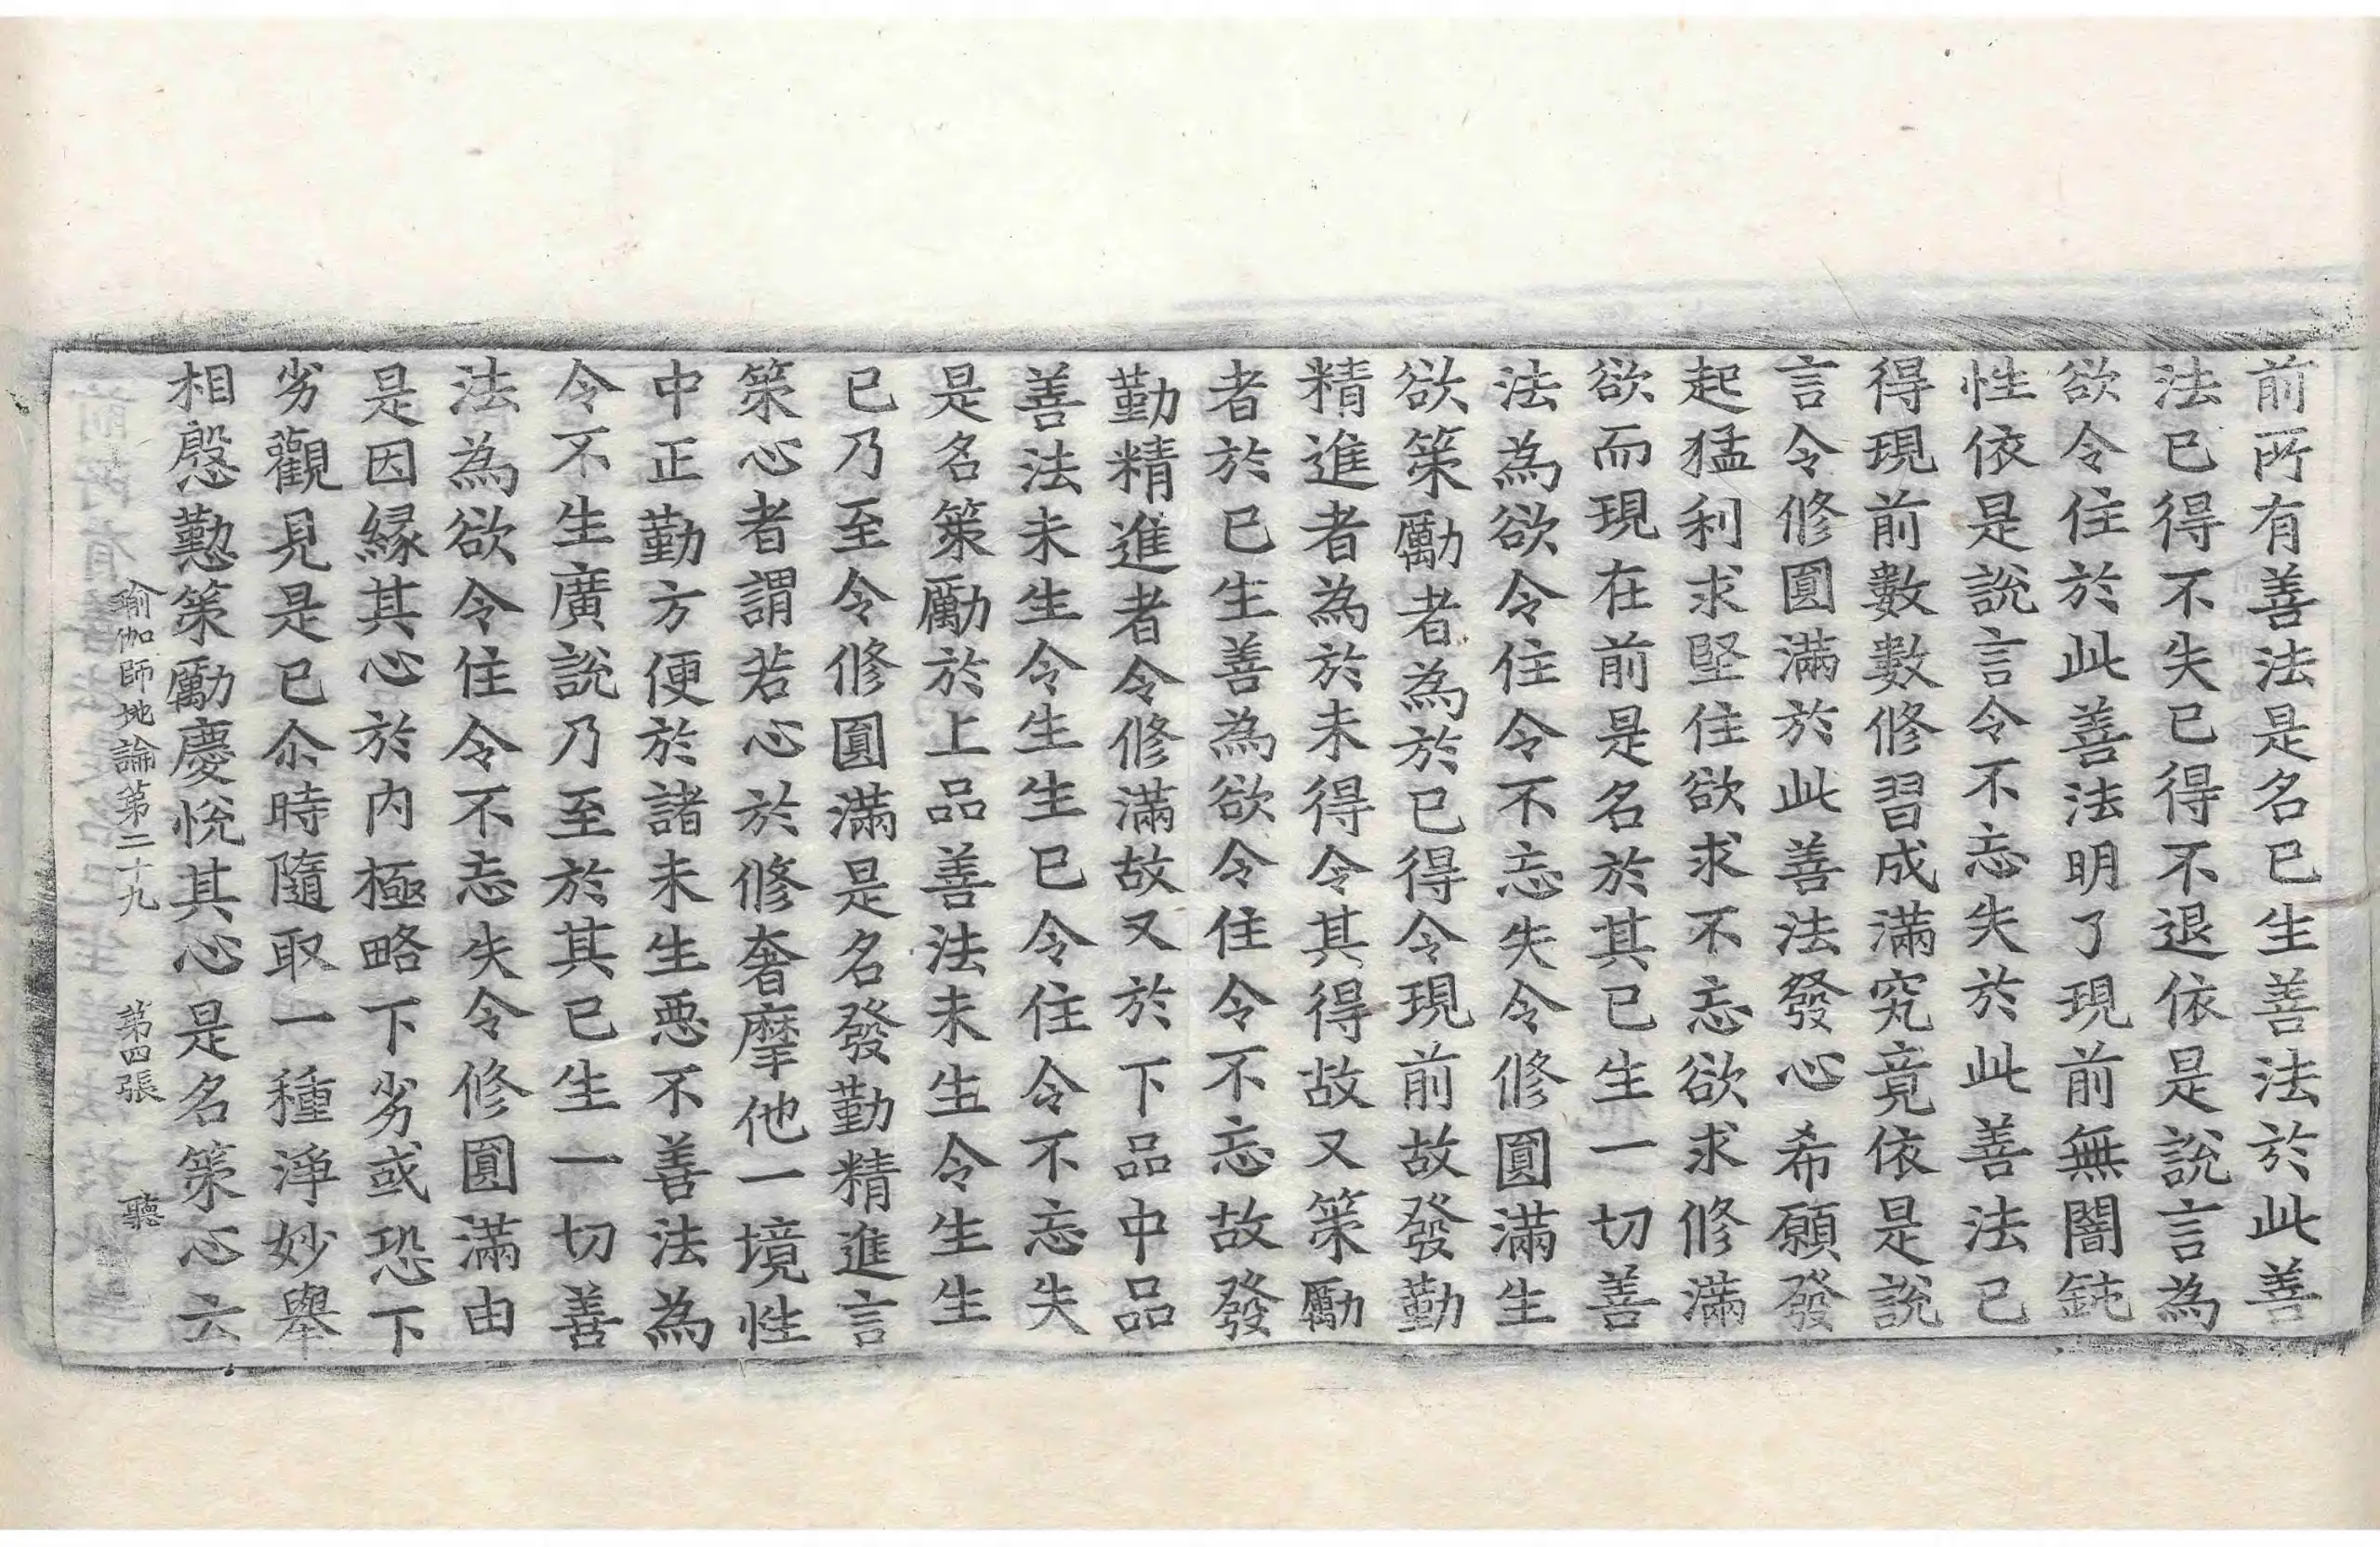 前所有善法是名已生善法於此善
法已得不失已得不退依是說言為
欲令住於此善法明了現前無闇鈍
性依是說言令不忘失於此善法已
得現前數數修習成滿究竟依是說
言令修圓滿於此善法發心希願發
起猛利求堅住欲求不忘欲求修滿
欲而現在前是名於其已生一切善
法為欲令住令不忘失令修圓滿生
欲策勵者為於已得令現前故發勤
精進者為於未得令其得故又策勵
者於已生善為欲令住令不忘故發
勤精進者令修滿故又於下品中品
善法未生令生生已令住令不忘失
是名策勵於上品善法未生令生生
已乃至令修圓滿是名發勤精進言
策心者謂若心於修奢摩他一境性
中正勤方便於諸未生惡不善法為
令不生廣說乃至於其已生一切善
法為欲令住令不忘失令修圓滿由
是因緣其心於內極略下劣或恐下
劣觀見是已尒時隨取一種淨妙舉
相慇懃策勵慶悅其心是名策心云
瑜伽師地論第二十九 第四張 聽